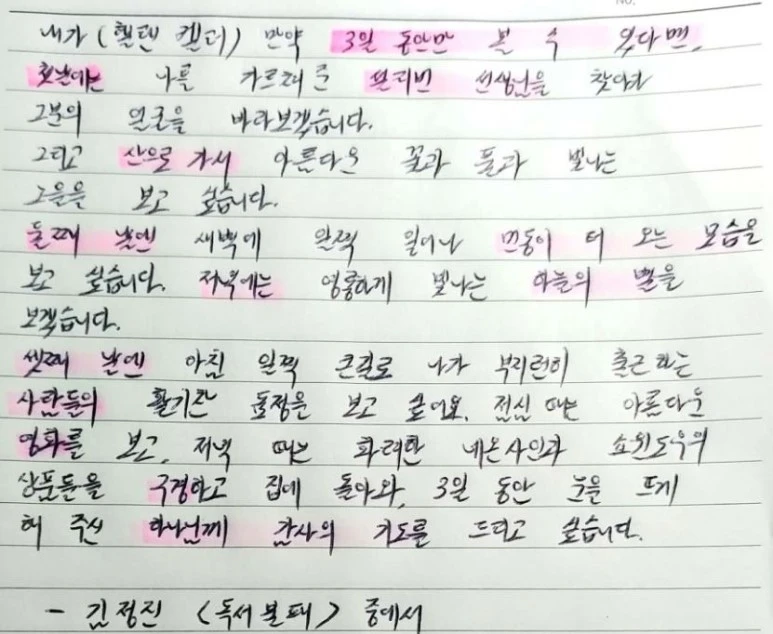 내가 (헬렌 켈러) 만약 3일 동안만 볼 수 있다면,
첫날에는 나를 가르쳐 준 쓸리번 선생님을 찾아가
그분의 얼굴을 바라보겠습니다.
그리고 산으로 가서 아름다운 꽃과 풀과 빛나는
노을을 보고 싶습니다.
둘째 날엔 새벽에 일찍 일어나 먼동이 터 오는 모습을
보고 싶습니다. 저녁에는 영롱하게 빛나는 하늘의 별을
보겠습니다.
셋째 날엔 아침 일찍 큰길로 나가 부지런히 출근하는
사람들의 활기찬 표정을 보고 싶어요. 점심 때는 아름다운
영화를 보고, 저녁 때는 화려한 네온사인과 쇼윈도우의
상품들을 구경하고 집에 돌아와, 3일 동안 눈을 뜨게
해 주신 하나님께 감사의 기도를 드리고 싶습니다.
- 김정진 <독서불패> 중에서